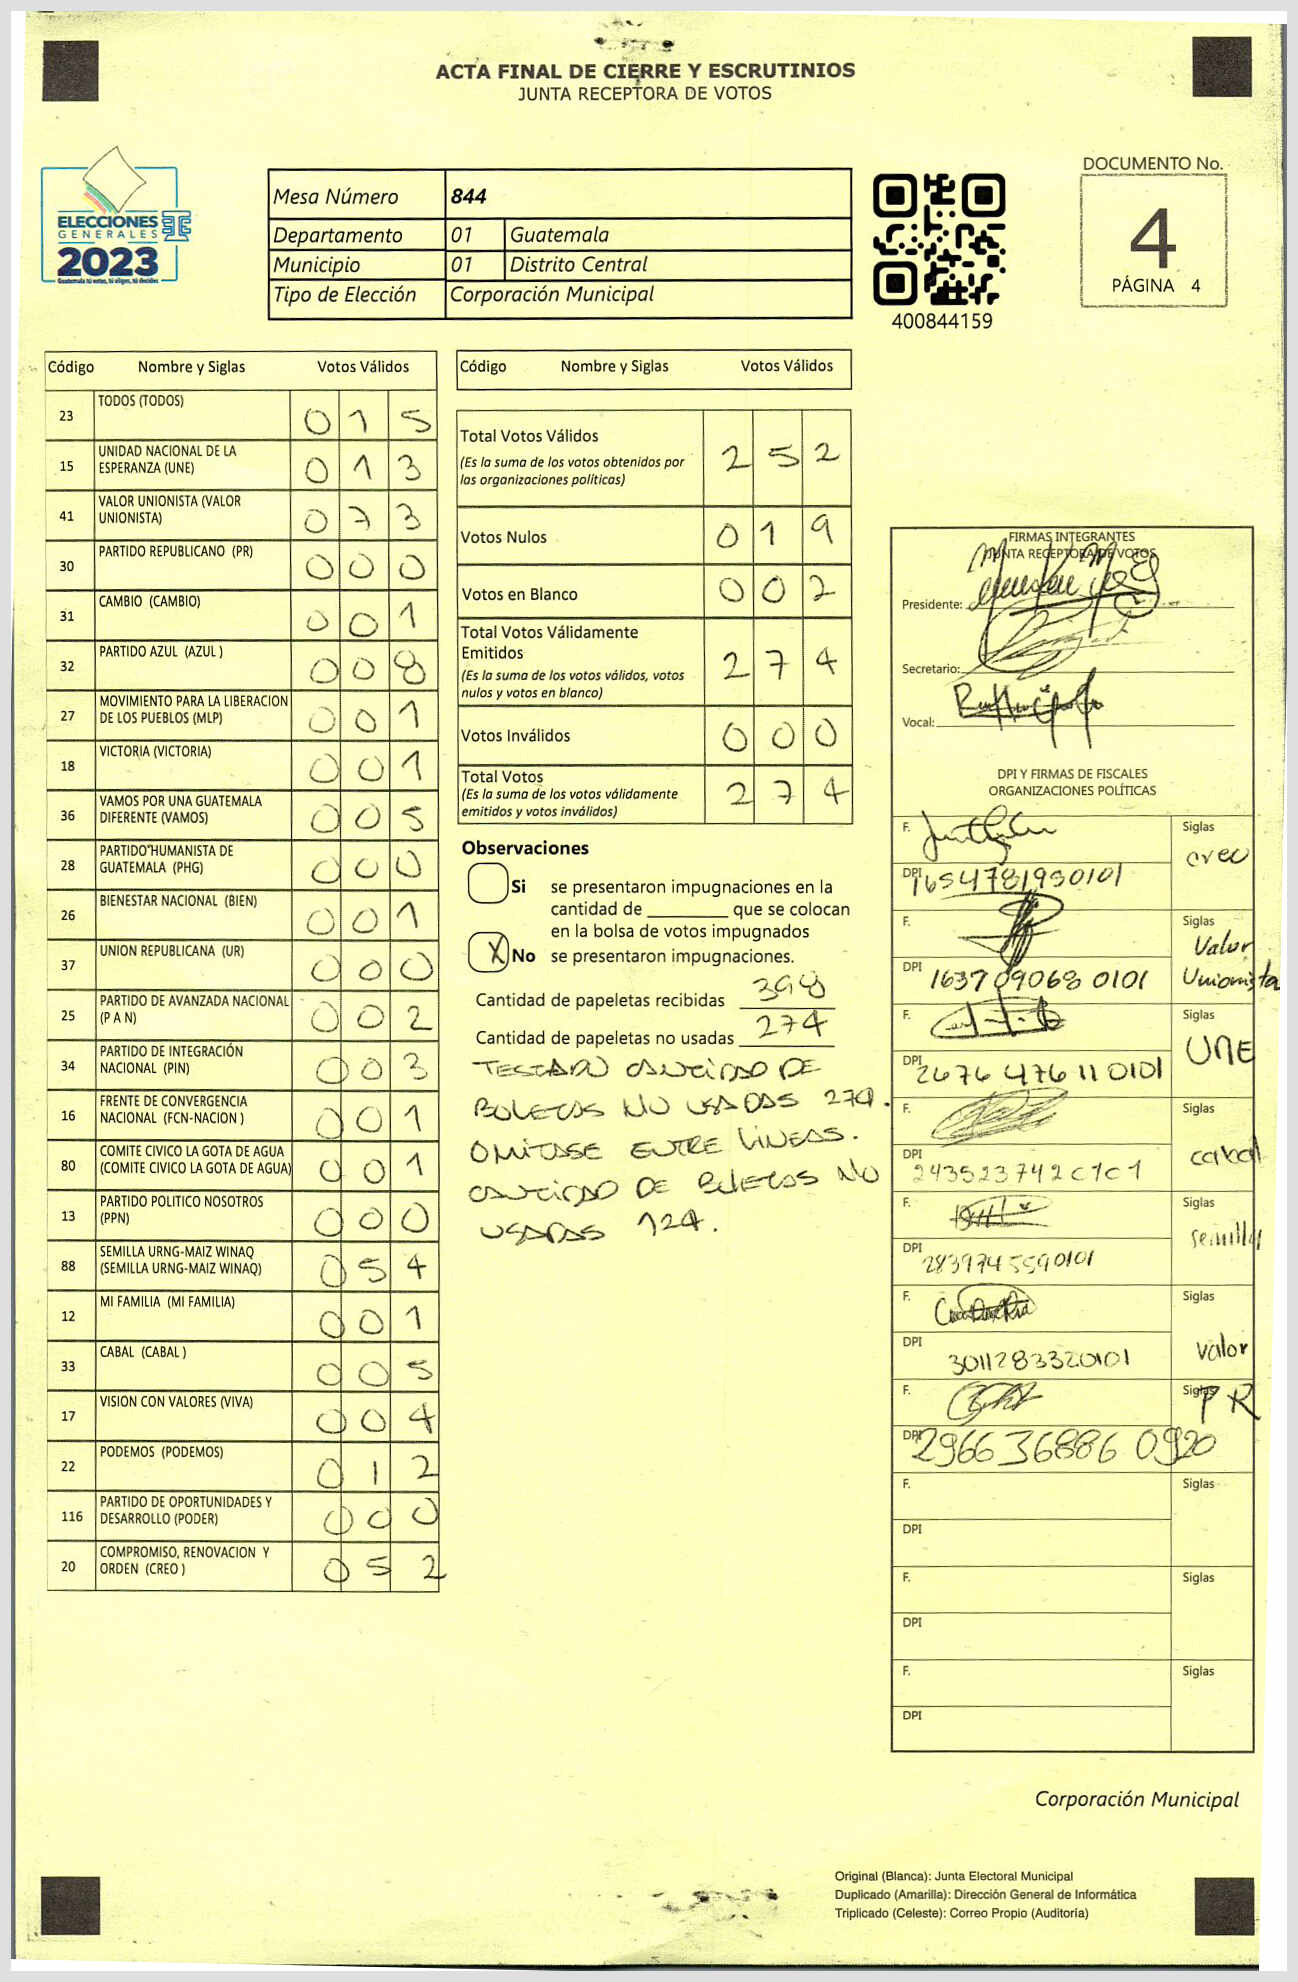 ACTA FINAL DE CIERRE Y ESCRUTINIOS
JUNTA RECEPTORA DE VOTOS
ELECCIONES
GENERALES
2023
Guatemala tú votas, tú eliges, tú decides
Mesa Número 844
Departamento 01 Guatemala
Municipio 01 Distrito Central
Tipo de Elección Corporación Municipal
400844159
DOCUMENTO No.
4
PÁGINA 4
Código Nombre y Siglas Votos Válidos
23 TODOS (TODOS) 0 1 5
15 UNIDAD NACIONAL DE LA ESPERANZA (UNE) 0 1 3
41 VALOR UNIONISTA (VALOR UNIONISTA) 0 7 3
30 PARTIDO REPUBLICANO (PR) 0 0 0
31 CAMBIO (CAMBIO) 0 0 1
32 PARTIDO AZUL (AZUL ) 0 0 8
27 MOVIMIENTO PARA LA LIBERACION DE LOS PUEBLOS (MLP) 0 0 1
18 VICTORIA (VICTORIA) 0 0 1
36 VAMOS POR UNA GUATEMALA DIFERENTE (VAMOS) 0 0 5
28 PARTIDO HUMANISTA DE GUATEMALA (PHG) 0 0 0
26 BIENESTAR NACIONAL (BIEN) 0 0 1
37 UNION REPUBLICANA (UR) 0 0 0
25 PARTIDO DE AVANZADA NACIONAL (P A N) 0 0 2
34 PARTIDO DE INTEGRACIÓN NACIONAL (PIN) 0 0 3
16 FRENTE DE CONVERGENCIA NACIONAL (FCN-NACION ) 0 0 1
80 COMITE CIVICO LA GOTA DE AGUA (COMITE CIVICO LA GOTA DE AGUA) 0 0 1
13 PARTIDO POLITICO NOSOTROS (PPN) 0 0 0
88 SEMILLA URNG-MAIZ WINAQ (SEMILLA URNG-MAIZ WINAQ) 0 5 4
12 MI FAMILIA (MI FAMILIA) 0 0 1
33 CABAL (CABAL ) 0 0 5
17 VISION CON VALORES (VIVA) 0 0 4
22 PODEMOS (PODEMOS) 0 1 2
116 PARTIDO DE OPORTUNIDADES Y DESARROLLO (PODER) 0 0 0
20 COMPROMISO, RENOVACION Y ORDEN (CREO ) 0 5 2
Código Nombre y Siglas Votos Válidos
Total Votos Válidos 2 5 2
(Es la suma de los votos obtenidos por
las organizaciones políticas)
Votos Nulos 0 1 9
Votos en Blanco 0 0 2
Total Votos Válidamente
Emitidos 2 7 4
(Es la suma de los votos válidos, votos
nulos y votos en blanco)
Votos Inválidos 0 0 0
Total Votos 2 7 4
(Es la suma de los votos válidamente
emitidos y votos inválidos)
Observaciones
Si se presentaron impugnaciones en la
cantidad de ________ que se colocan
en la bolsa de votos impugnados
X No se presentaron impugnaciones.
Cantidad de papeletas recibidas 398
Cantidad de papeletas no usadas 274
TESTADO CANTIDAD DE
BOLETAS NO USADAS 274.
OMITASE ENTRE LINEAS.
CANTIDAD DE BOLETAS NO
USADAS 124.
FIRMAS INTEGRANTES
JUNTA RECEPTORA DE VOTOS
Presidente:
Secretario:
Vocal:
DPI Y FIRMAS DE FISCALES
ORGANIZACIONES POLÍTICAS
F. Siglas creo
DPI 1654781930101
F. Siglas Valor Unionista
DPI 1637090680101
F. Siglas UNE
DPI 2676476110101
F. Siglas cabal
DPI 2435237420101
F. Siglas semilla
DPI 2839745590101
F. Siglas valor
DPI 3011283320101
F. Siglas PR
DPI 2966368860920
F. Siglas
DPI
F. Siglas
DPI
F. Siglas
DPI
Corporación Municipal
Original (Blanca): Junta Electoral Municipal
Duplicado (Amarilla): Dirección General de Informática
Triplicado (Celeste): Correo Propio (Auditoría)